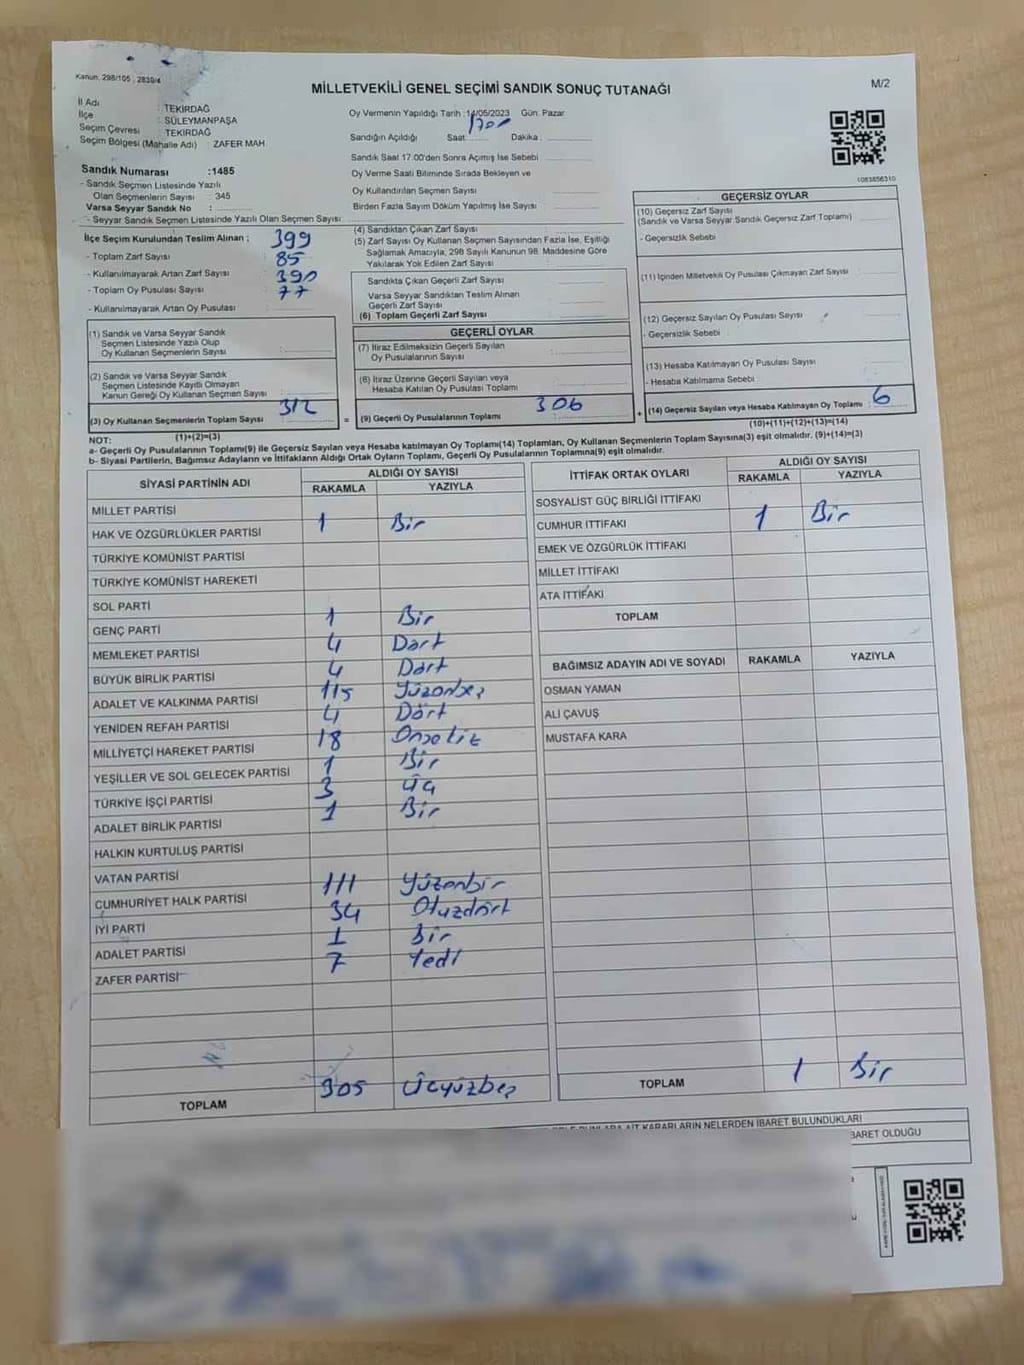 Kanun: 298/105, 2839/4
MİLLETVEKİLİ GENEL SEÇİMİ SANDIK SONUÇ TUTANAĞI
M/2
İl Adı : TEKİRDAĞ
İlçe : SÜLEYMANPAŞA
Seçim Çevresi : TEKİRDAĞ
Seçim Bölgesi (Mahalle Adı) : ZAFER MAH
Oy Vermenin Yapıldığı Tarih :14/05/2023 Gün: Pazar
Sandığın Açıldığı Saat: 1700 Dakika:
Sandık Saat 17.00'den Sonra Açımış İse Sebebi
Oy Verme Saati Bitiminde Sırada Bekleyen ve
Oy Kullandırılan Seçmen Sayısı
Birden Fazla Sayım Döküm Yapılmış İse Sayısı :
1083856310
Sandık Numarası :1485
- Sandık Seçmen Listesinde Yazılı
Olan Seçmenlerin Sayısı : 345
Varsa Seyyar Sandık No :
- Seyyar Sandık Seçmen Listesinde Yazılı Olan Seçmen Sayısı:
İlçe Seçim Kurulundan Teslim Alınan ; 399
- Toplam Zarf Sayısı : 85
- Kullanılmayarak Artan Zarf Sayısı : 390
- Toplam Oy Pusulası Sayısı : 77
- Kullanılmayarak Artan Oy Pusulası :
(1) Sandık ve Varsa Seyyar Sandık
Seçmen Listesinde Yazılı Olup
Oy Kullanan Seçmenlerin Sayısı :
(2) Sandık ve Varsa Seyyar Sandık
Seçmen Listesinde Kayıtlı Olmayan
Kanun Gereği Oy Kullanan Seçmen Sayısı :
(3) Oy Kullanan Seçmenlerin Toplam Sayısı : 312 =
(1)+(2)=(3)
(4) Sandıktan Çıkan Zarf Sayısı
(5) Zarf Sayısı Oy Kullanan Seçmen Sayısından Fazla İse, Eşitliği
Sağlamak Amacıyla, 298 Sayılı Kanunun 98. Maddesine Göre
Yakılarak Yok Edilen Zarf Sayısı :
Sandıkta Çıkan Geçerli Zarf Sayısı
Varsa Seyyar Sandıktan Teslim Alınan
Geçerli Zarf Sayısı
(6) Toplam Geçerli Zarf Sayısı
GEÇERLİ OYLAR
(7) İtiraz Edilmeksizin Geçerli Sayılan
Oy Pusulalarının Sayısı
(8) İtiraz Üzerine Geçerli Sayılan veya
Hesaba Katılan Oy Pusulası Toplamı
(9) Geçerli Oy Pusulalarının Toplamı 306 +
GEÇERSİZ OYLAR
(10) Geçersiz Zarf Sayısı
(Sandık ve Varsa Seyyar Sandık Geçersiz Zarf Toplamı)
- Geçersizlik Sebebi
(11) İçinden Milletvekili Oy Pusulası Çıkmayan Zarf Sayısı
(12) Geçersiz Sayılan Oy Pusulası Sayısı
- Geçersizlik Sebebi
(13) Hesaba Katılmayan Oy Pusulası Sayısı
- Hesaba Katılmama Sebebi
(14) Geçersiz Sayılan veya Hesaba Katılmayan Oy Toplamı : 6
(10)+(11)+(12)+(13)=(14)
NOT:
a- Geçerli Oy Pusulalarının Toplamı(9) ile Geçersiz Sayılan veya Hesaba katılmayan Oy Toplamı(14) Toplamları, Oy Kullanan Seçmenlerin Toplam Sayısına(3) eşit olmalıdır. (9)+(14)=(3)
b- Siyasi Partilerin, Bağımsız Adayların ve İttifakların Aldığı Ortak Oyların Toplamı, Geçerli Oy Pusulalarının Toplamına(9) eşit olmalıdır.
SİYASİ PARTİNİN ADI ALDIĞI OY SAYISI
RAKAMLA YAZIYLA
MİLLET PARTİSİ
HAK VE ÖZGÜRLÜKLER PARTİSİ 1 Bir
TÜRKİYE KOMÜNİST PARTİSİ
TÜRKİYE KOMÜNİST HAREKETİ
SOL PARTİ
GENÇ PARTİ 1 Bir
MEMLEKET PARTİSİ 4 Dört
BÜYÜK BİRLİK PARTİSİ 4 Dört
ADALET VE KALKINMA PARTİSİ 115 Yüzonbeş
YENİDEN REFAH PARTİSİ 4 Dört
MİLLİYETÇİ HAREKET PARTİSİ 18 Onsekiz
YEŞİLLER VE SOL GELECEK PARTİSİ 1 Bir
TÜRKİYE İŞÇİ PARTİSİ 3 Üç
ADALET BİRLİK PARTİSİ 1 Bir
HALKIN KURTULUŞ PARTİSİ
VATAN PARTİSİ
CUMHURİYET HALK PARTİSİ 111 Yüzonbir
İYİ PARTİ 34 Otuzdört
ADALET PARTİSİ 1 Bir
ZAFER PARTİSİ 7 Yedi
TOPLAM 305 Üçyüzbeş
İTTİFAK ORTAK OYLARI ALDIĞI OY SAYISI
RAKAMLA YAZIYLA
SOSYALİST GÜÇ BİRLİĞİ İTTİFAKI
CUMHUR İTTİFAKI 1 Bir
EMEK VE ÖZGÜRLÜK İTTİFAKI
MİLLET İTTİFAKI
ATA İTTİFAKI
TOPLAM
BAĞIMSIZ ADAYIN ADI VE SOYADI RAKAMLA YAZIYLA
OSMAN YAMAN
ALİ ÇAVUŞ
MUSTAFA KARA
TOPLAM 1 Bir
KARARLARIN NELERDEN İBARET BULUNDUKLARI
BARET OLDUĞU